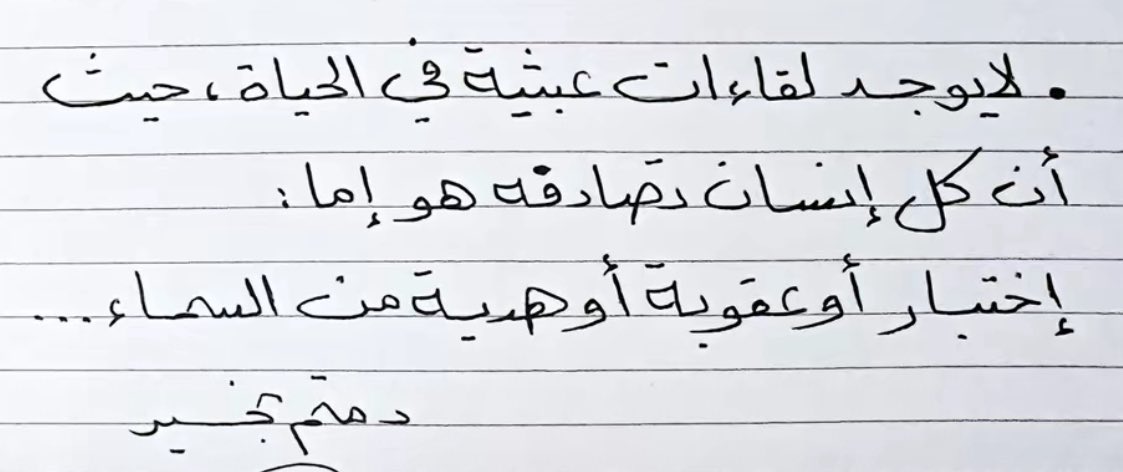 • لا يوجد لقاءات عبثية في الحياة، حيث
أن كل إنسان تصادفه هو إما:
إختبار أو عقوبة أو هدية من السماء...
دمتم بخير